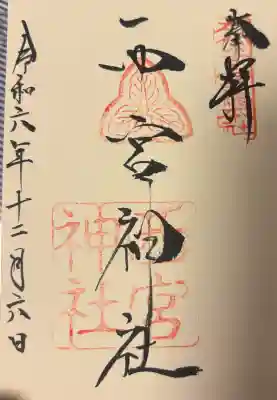 奉拝
西宮神社
西宮
神社
令和六年十二月六日